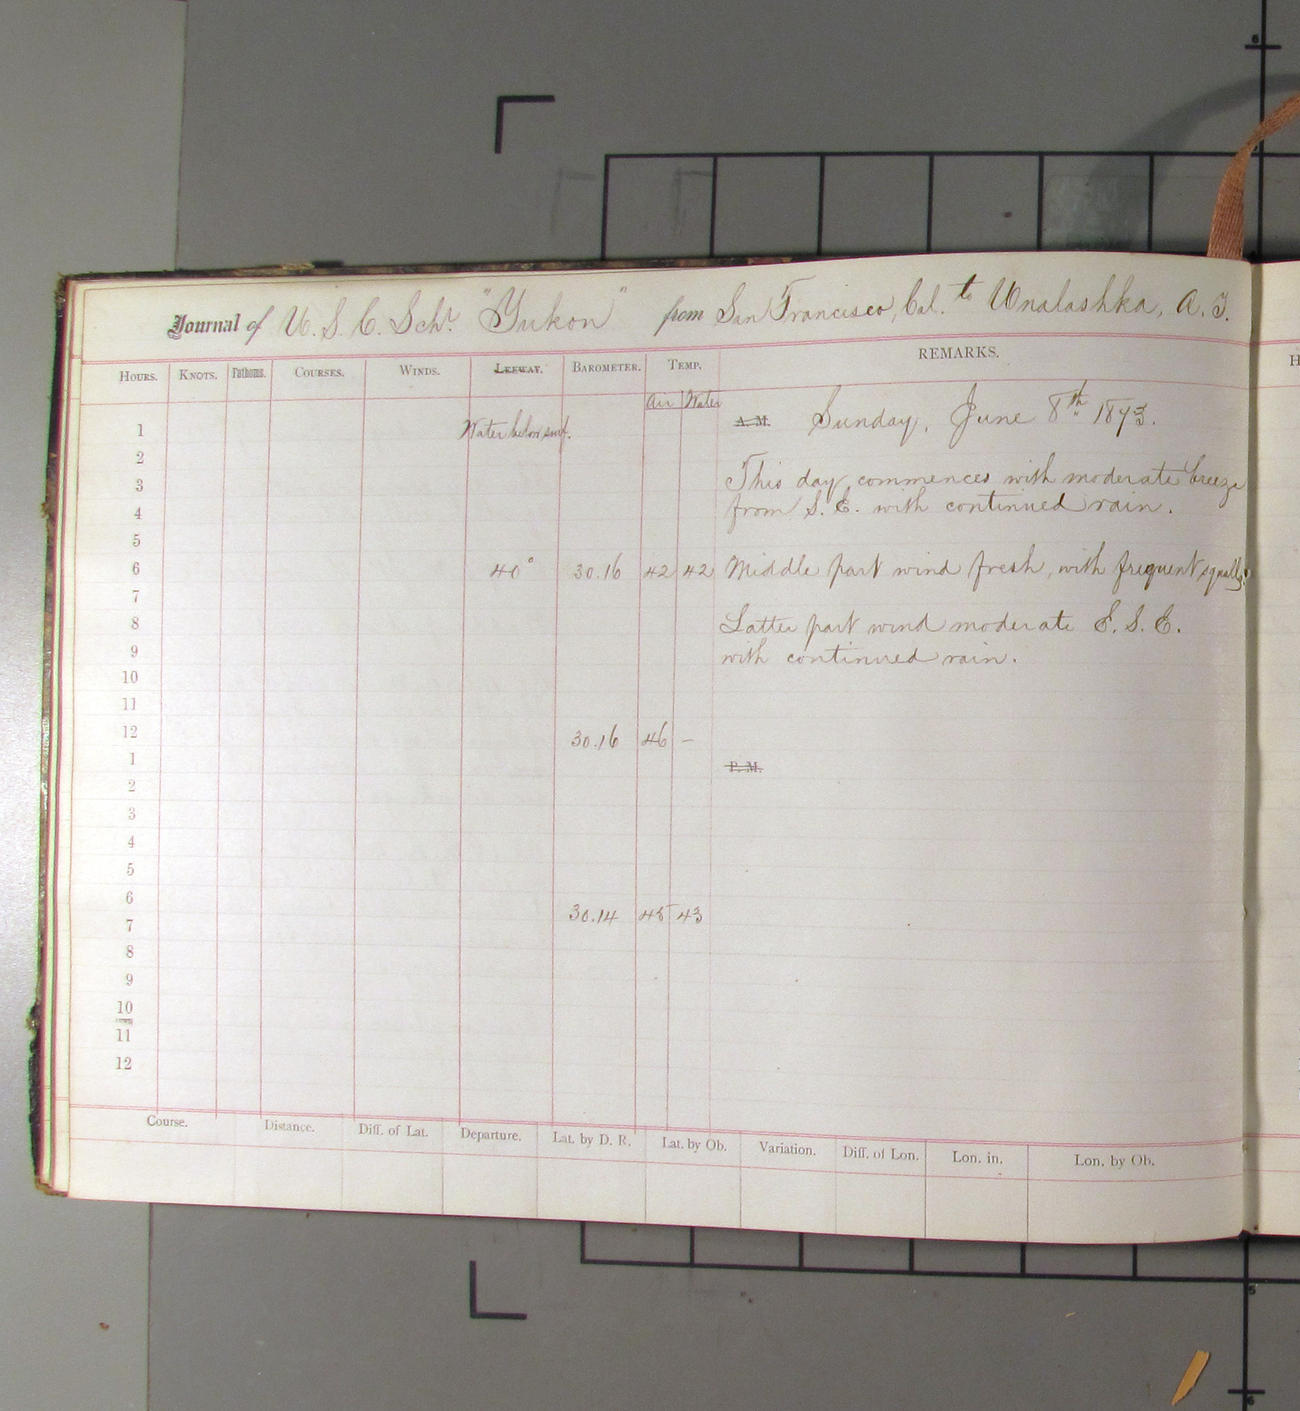 Journal of U. S. C. Schr. "Yukon" from San Francisco, Cal. to Unalashka, A. T.
HOURS. KNOTS. Fathoms. COURSES. WINDS. LEEWAY. BAROMETER. TEMP. REMARKS.
Air Water
1 Water below surf. A. M. Sunday, June 8th 1873.
2
3 This day commences with moderate breeze
4 from S. E. with continued rain.
5
6 40° 30.16 42 42 Middle part wind fresh, with frequent squalls.
7
8 Latter part wind moderate E. S. E.
9 with continued rain.
10
11
12 30.16 46 –
1 P. M.
2
3
4
5
6 30.14 45 43
7
8
9
10
11
12
Course. Distance. Diff. of Lat. Departure. Lat. by D. R. Lat. by Ob. Variation. Diff. of Lon. Lon. in. Lon. by Ob.
H
6
5
6